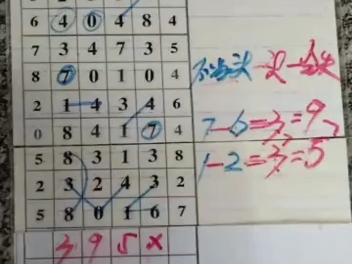 6 4 0 4 8 4
7 3 4 7 3 5
8 7 0 1 0 4
2 1 4 3 4 6
0 8 4 1 7 4
5 8 3 1 3 8
2 3 2 4 3 2
5 8 0 1 6 7
3 9 5 x
7-6=3=9
1-2=3=5